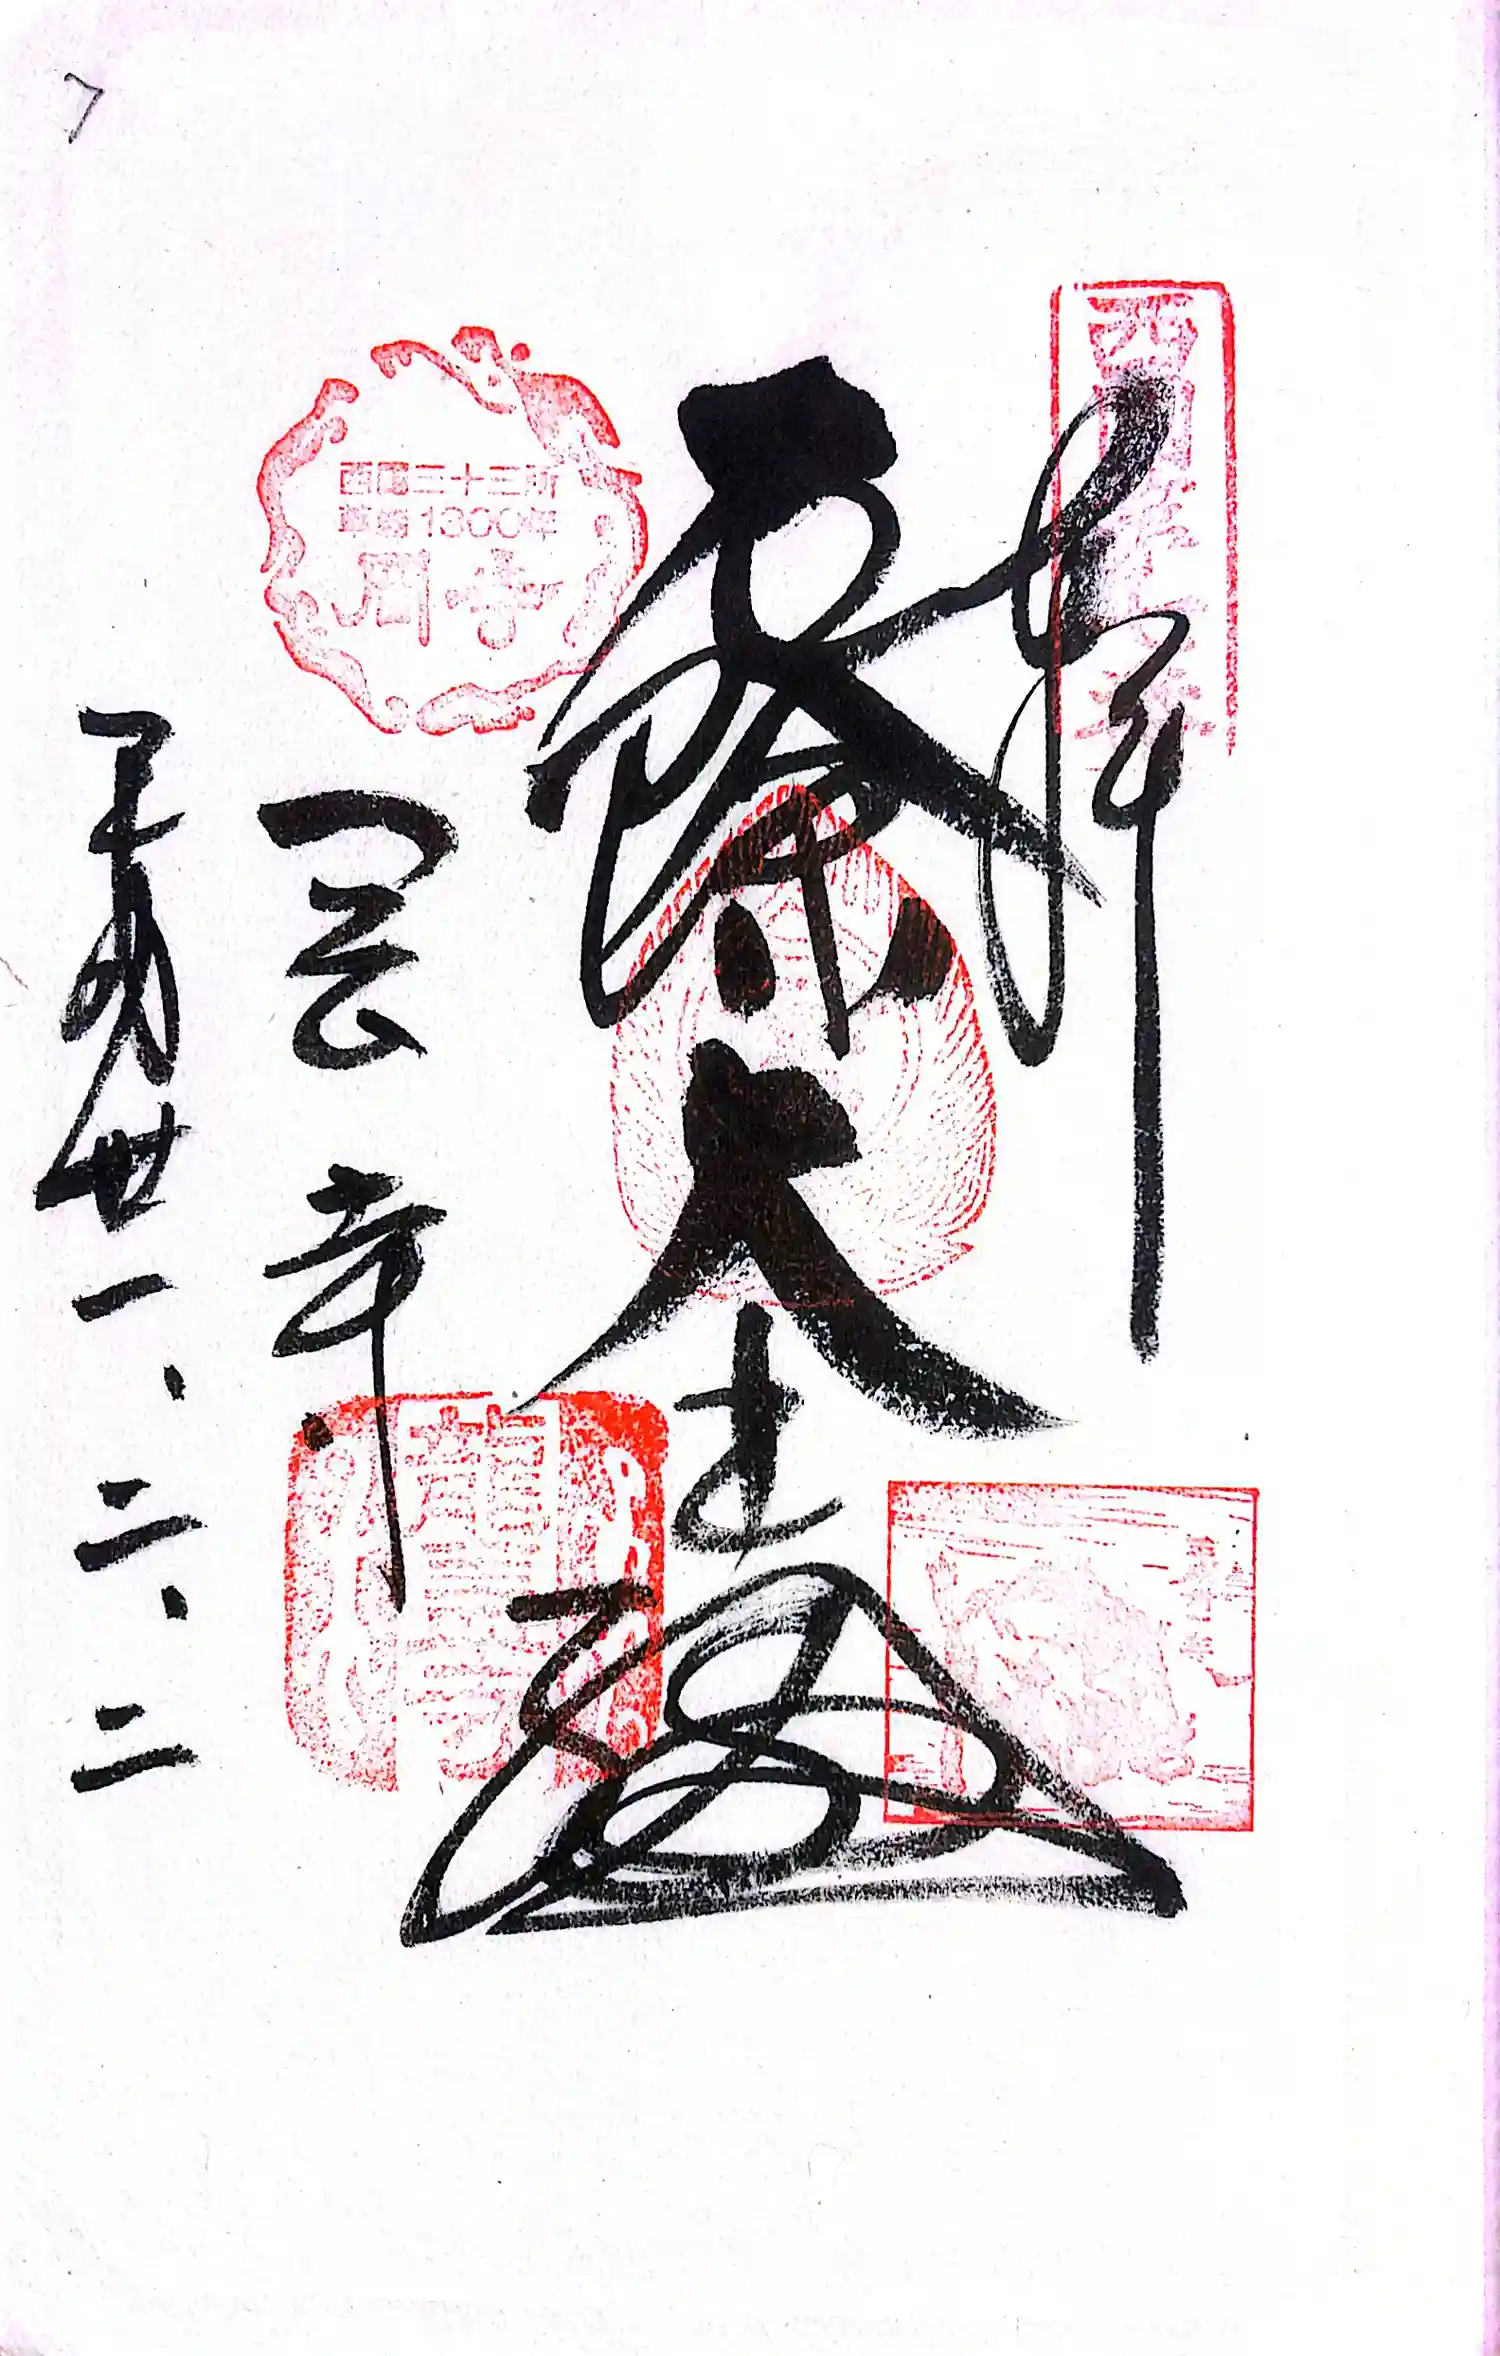 7
西国第七番
奉拝
厄除大悲殿
西国三十三所
草創1300年
岡寺
岡寺
龍蓋寺
平成丗一、二、二